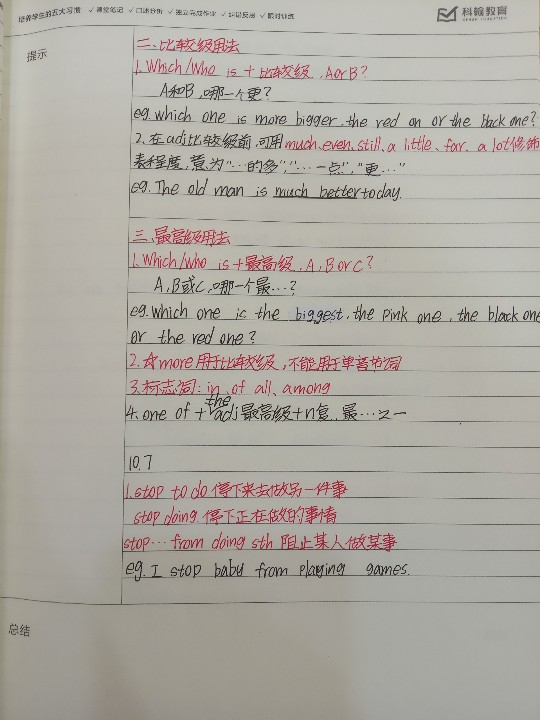 培养学生的五大习惯 ✓课堂笔记 ✓口述分析 ✓独立完成作业 ✓错题反思 ✓限时训练
科翰教育
提示
二、比较级用法
1.Which/Who is + 比较级, A or B?
A和B,哪一个更?
eg. which one is more bigger, the red on or the black one?
2.在adj比较级前,可用much, even, still, a little, far, a lot修饰
表程度,意为"…的多","…一点","更…"
eg. The old man is much better today.
三、最高级用法
1.Which/who is +最高级, A, B or C?
A, B或C,哪一个最…?
eg. which one is the biggest, the pink one, the black one
or the red one?
2.☆more用于比较级,不能用于单音节词
3.标志词: in, of all, among
4. one of + the adj最高级+n复, 最…之一
10.7
1.stop to do 停下来去做另一件事
stop doing 停下正在做的事情
stop… from doing sth 阻止某人做某事
eg. I stop baby from playing games.
总结